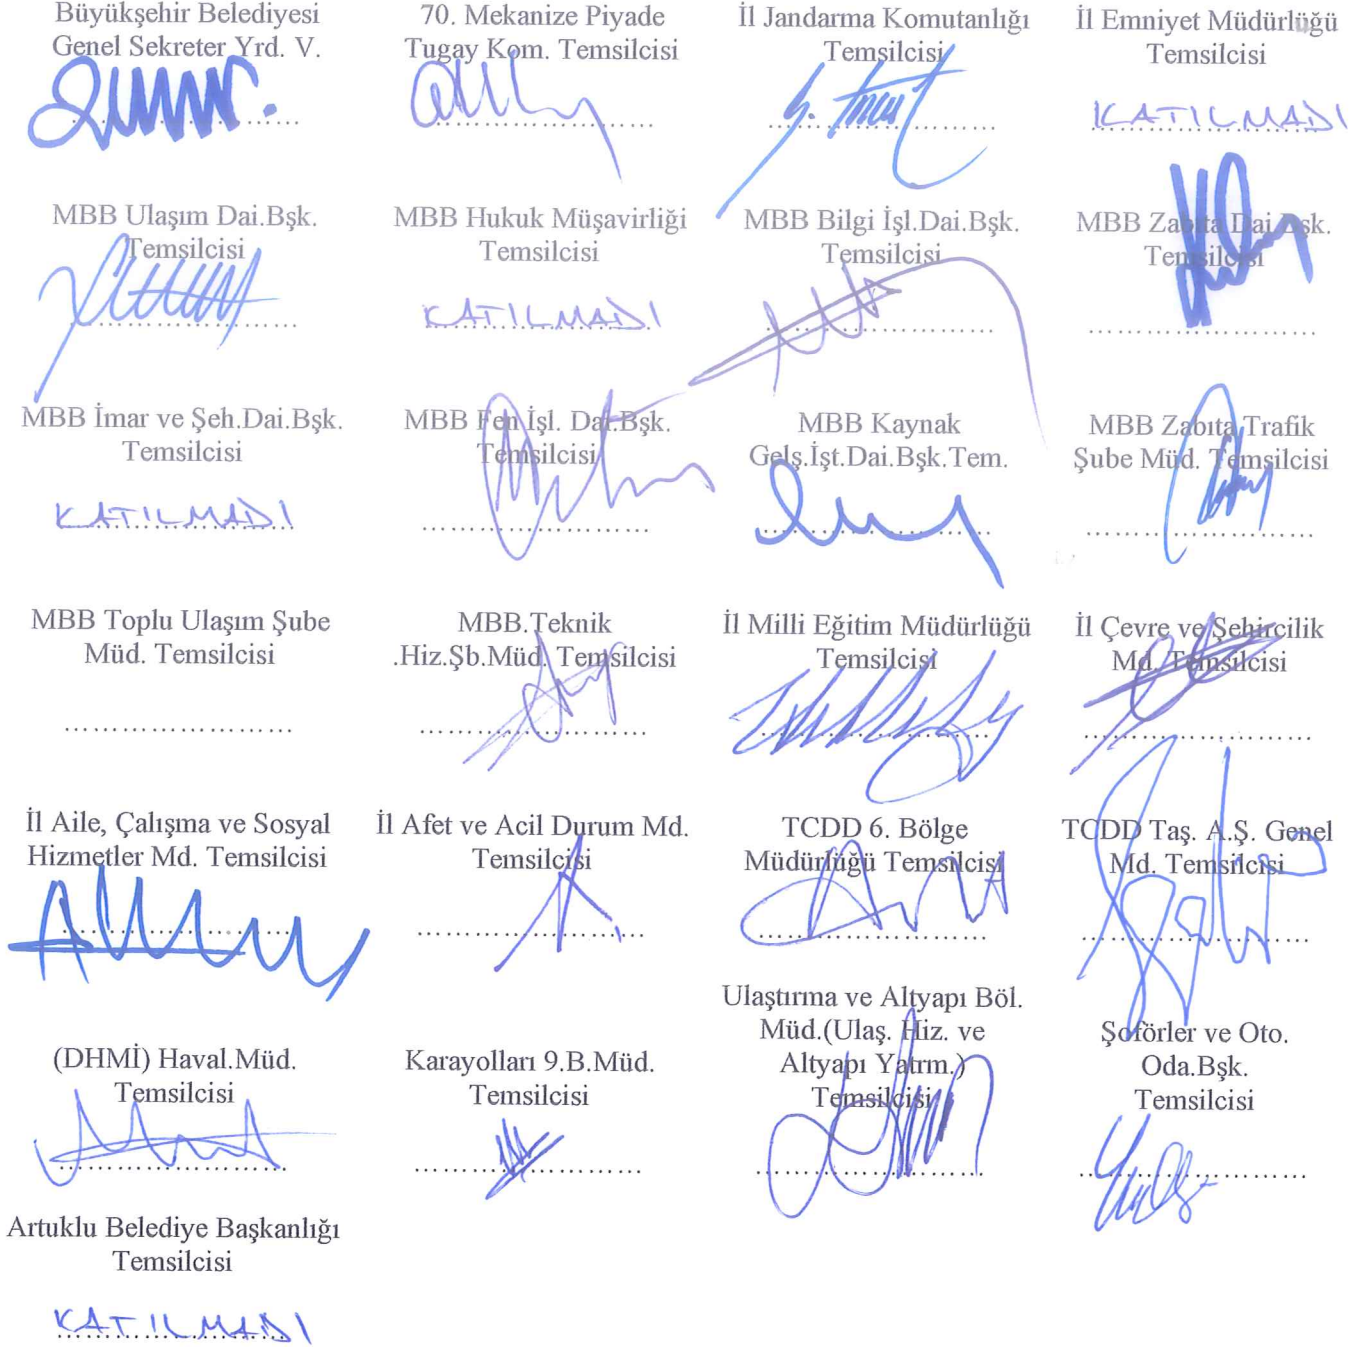 Büyükşehir Belediyesi
Genel Sekreter Yrd. V.
70. Mekanize Piyade
Tugay Kom. Temsilcisi
İl Jandarma Komutanlığı
Temsilcisi
İl Emniyet Müdürlüğü
Temsilcisi
KATILMADI
MBB Ulaşım Dai.Bşk.
Temsilcisi
MBB Hukuk Müşavirliği
Temsilcisi
KATILMADI
MBB Bilgi İşl.Dai.Bşk.
Temsilcisi
MBB Zabıta Dai.Bşk.
Temsilcisi
MBB İmar ve Şeh.Dai.Bşk.
Temsilcisi
KATILMADI
MBB Fen İşl. Dai.Bşk.
Temsilcisi
MBB Kaynak
Gelş.İşt.Dai.Bşk.Tem.
MBB Zabıta Trafik
Şube Müd. Temsilcisi
MBB Toplu Ulaşım Şube
Müd. Temsilcisi
MBB.Teknik
.Hiz.Şb.Müd. Temsilcisi
İl Milli Eğitim Müdürlüğü
Temsilcisi
İl Çevre ve Şehircilik
Md. Temsilcisi
İl Aile, Çalışma ve Sosyal
Hizmetler Md. Temsilcisi
İl Afet ve Acil Durum Md.
Temsilcisi
TCDD 6. Bölge
Müdürlüğü Temsilcisi
TCDD Taş. A.Ş. Genel
Md. Temsilcisi
(DHMİ) Haval.Müd.
Temsilcisi
Karayolları 9.B.Müd.
Temsilcisi
Ulaştırma ve Altyapı Böl.
Müd.(Ulaş. Hiz. ve
Altyapı Yatrm.)
Temsilcisi
Şoförler ve Oto.
Oda.Bşk.
Temsilcisi
Artuklu Belediye Başkanlığı
Temsilcisi
KATILMADI